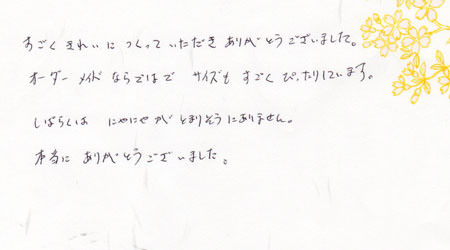 すごく きれいに つくって いただき ありがとうございました。
オーダーメイドならではで サイズも すごく ぴったりしています。
しばらくは にやにや が とまりそうにありません。
本当に ありがとうございました。